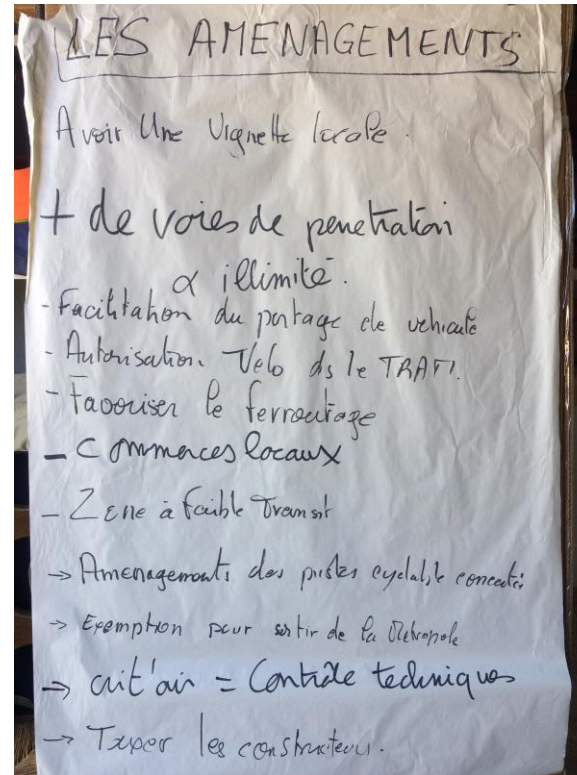 LES AMENAGEMENTS
Avoir Une Vignette locale.
+ de voies de penetration
α illimité.
- Facilitation du partage de vehicule
- Autorisation Velo ds le TRAM.
- Favoriser le ferroutage
- Commerces locaux
- Zone à faible Transit
→ Amenagements des pistes cyclable
→ Exemption pour sortir de la Metropole
→ crit'air = Contrôle techniques
→ Taxer les constructeurs.